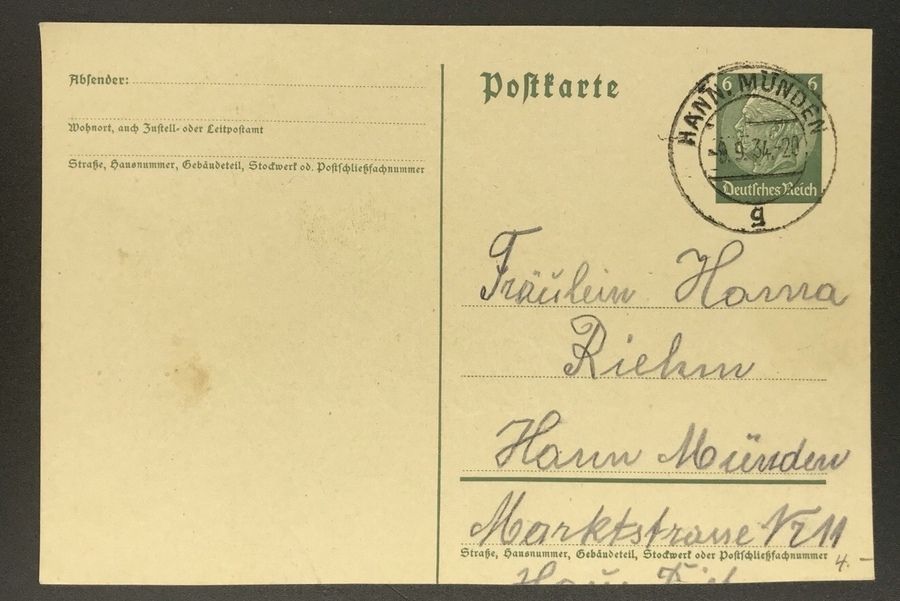 Absender:
Wohnort, auch Zustell- oder Leitpostamt
Straße, Hausnummer, Gebäudeteil, Stockwerk od. Postschließfachnummer
Postkarte
6 6
HANN. MÜNDEN
9.9.34.-20
g
Deutsches Reich
Fräulein Hanna
Riehm
Hann Münden
Marktstrasse Nr 11
Straße, Hausnummer, Gebäudeteil, Stockwerk oder Postschließfachnummer
4.-